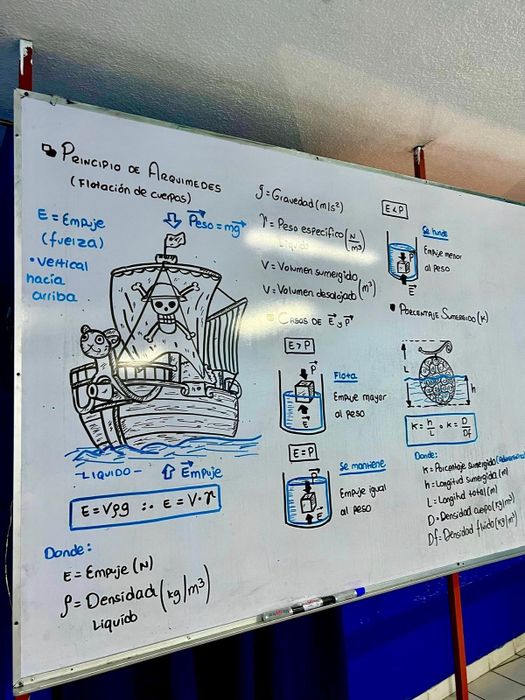 Principio de Arquimedes
(Flotación de cuerpos)
E = Empuje
(fuerza)
• Vertical
hacia
arriba
Peso = mg
- LIQUIDO -
Empuje
E = Vρg ∴ E = V·γ
Donde:
E = Empuje (N)
ρ = Densidad (kg/m³)
Liquido
g = Gravedad (m/s²)
γ = Peso específico (N/m³)
Liquido
V = Volumen sumergido
V = Volumen desalojado (m³)
Casos de E y P
E > P
P
E
Flota
Empuje mayor
al peso
E = P
P
E
Se mantiene
Empuje igual
al peso
E < P
P
E
Se hunde
Empuje menor
al peso
Porcentaje Sumergido (K)
L
h
K = h/L o K = D/Df
Donde:
K = Porcentaje sumergido
h = Longitud sumergida (m)
L = Longitud total (m)
D = Densidad cuerpo (kg/m³)
Df = Densidad fluido (kg/m³)